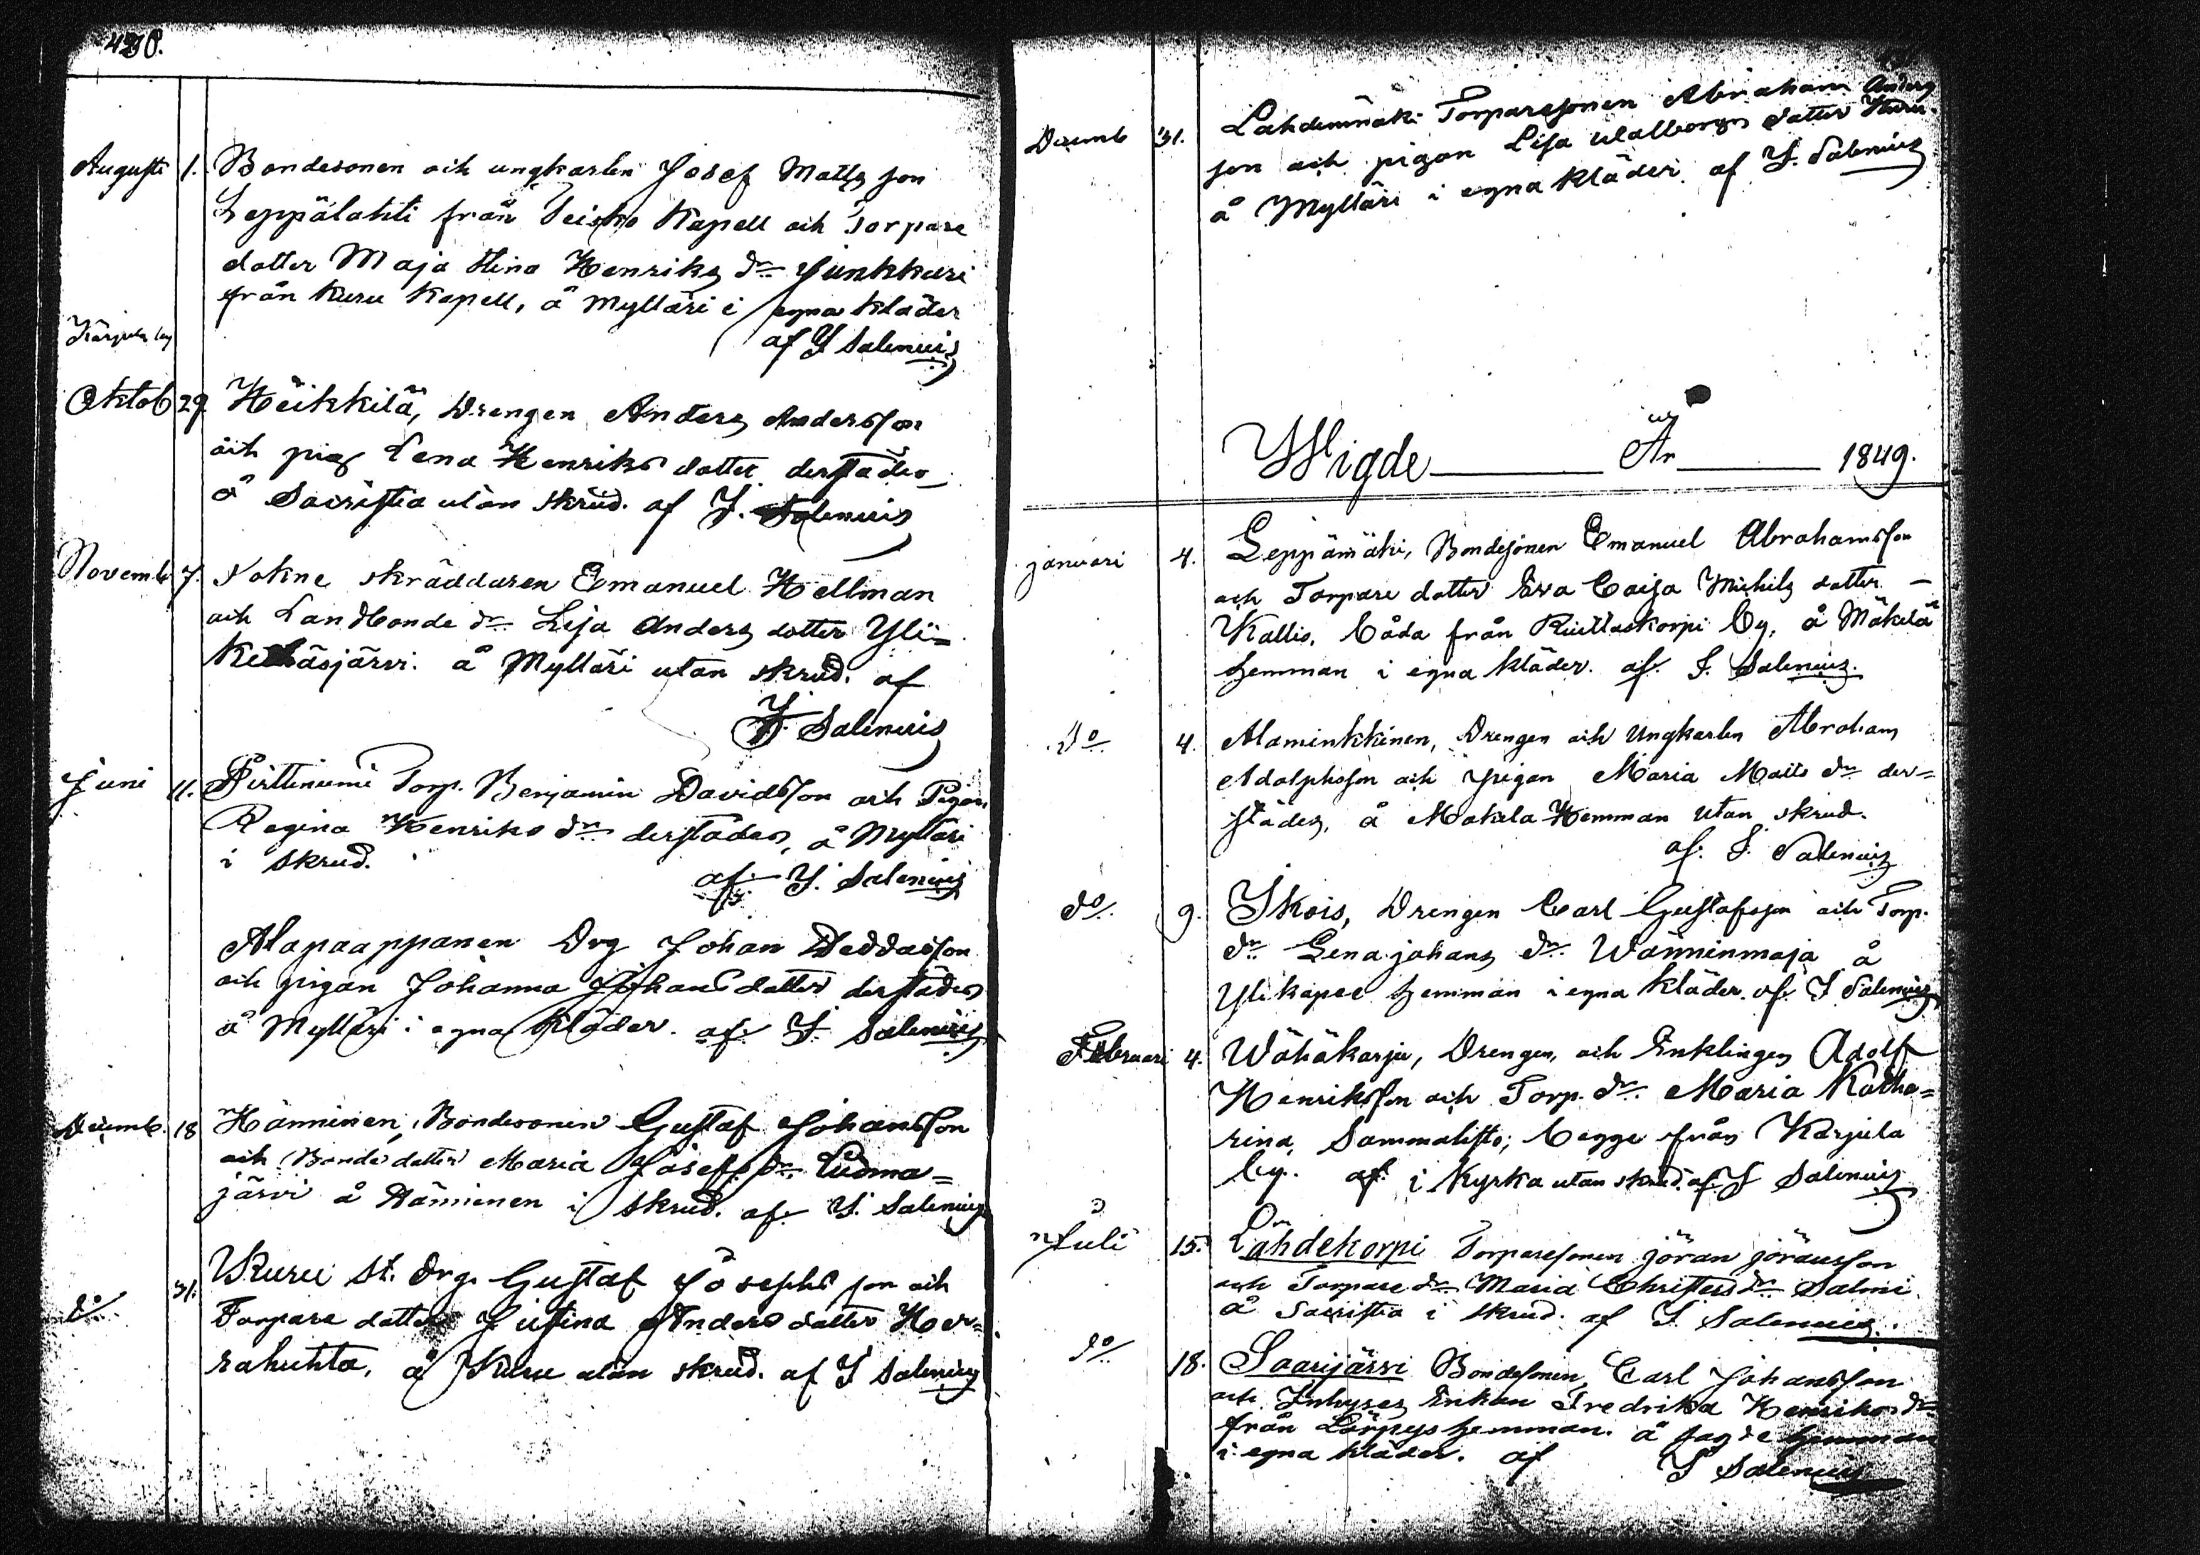 430.
Augusti 1. Bondesonen och ungkarlen Josef Matts son
Leppälahti från Teisko Kapell och Torpare
dotter Maja Stina Henriks dr Junkkari
från Kuru Kapell, å Mylläri i egna kläder
af J Salenius
Kärjula by
Oktob 29. Heikkilä, Drengen Anders Andersson
och pig Lena Henriks dotter derstädes
å Sacristia utan skrud. af J. Salenius
Novemb 7. Sokne skräddaren Emanuel Hellman
och Landbonde dr Lisa Anders dotter Yli=
Keihäsjärvi. å Mylläri utan skrud. af
J. Salenius
Juni 11. Pirttinemi Torp. Benjamin Davidsson och Pigan
Regina Henriks dr derstädes, å Mylläri
i skrud. af J. Salenius
Alapaappanen Drg Johan
och pigan Johanna Johans dotter derstädes
å Mylläri i egna kläder. af J. Salenius
Decemb. 18 Hänninen, Bondesonen Gustaf Johansson
och Bonde dotter Maria Josefs dr Liedma=
järvi å Hänninen i skrud. af J. Salenius
do 31. Kuru St. Drg. Gustaf Josephs son och
Torpare dotter Justina Anders dotter Her=
rahuhta, å Kuru utan skrud. af J Salenius
Decemb 31. Lahdenmäki Torparesonen Abraham Anders
son och pigan Lisa Walborg dotter Kuru.
å Mylläri i egna kläder. af J. Salenius
Wigde År 1849.
januari 4. Leppämäki, Bondesonen Emanuel Abrahamsson
och Torpare dotter Eva Caisa Michils dotter –
Kallio, båda från Riuttaskorpi by, å Mäkelä
hemman i egna kläder. af. J. Salenius.
do 4. Alaminkkinen, Drengen och Ungkarlen Abraham
Adolphsson och pigan Maria Matts dr der=
städes, å Makela Hemman utan skrud.
af. J. Salenius
do 9. Skois, Drengen Carl Gustafsson och Torp.
dr Lena johans dr Wänninmaja å
Ylikapee hemman i egna kläder. af J Salenius
Februari 4. Wähäkarju, Drengen, och Enklingen Adolf
Henriksson och Torp. dr. Maria Katha=
rina, Sammalisto; begge från Karjula
by. af i Kyrka utan skrud. af J Salenius
Juli 15. Lähdekorpi Torparesonen jöran jöransson
och Torpare dr Maria Christers dr Salmi
å Sacristia i skrud. af J. Salenius.
do 18. Saarijärvi Bondesonen, Carl Johansson
och Inhyses Enkan Fredrika Henriks dr
från Lörpys hemman. å sagde hemman
i egna kläder. af J Salenius